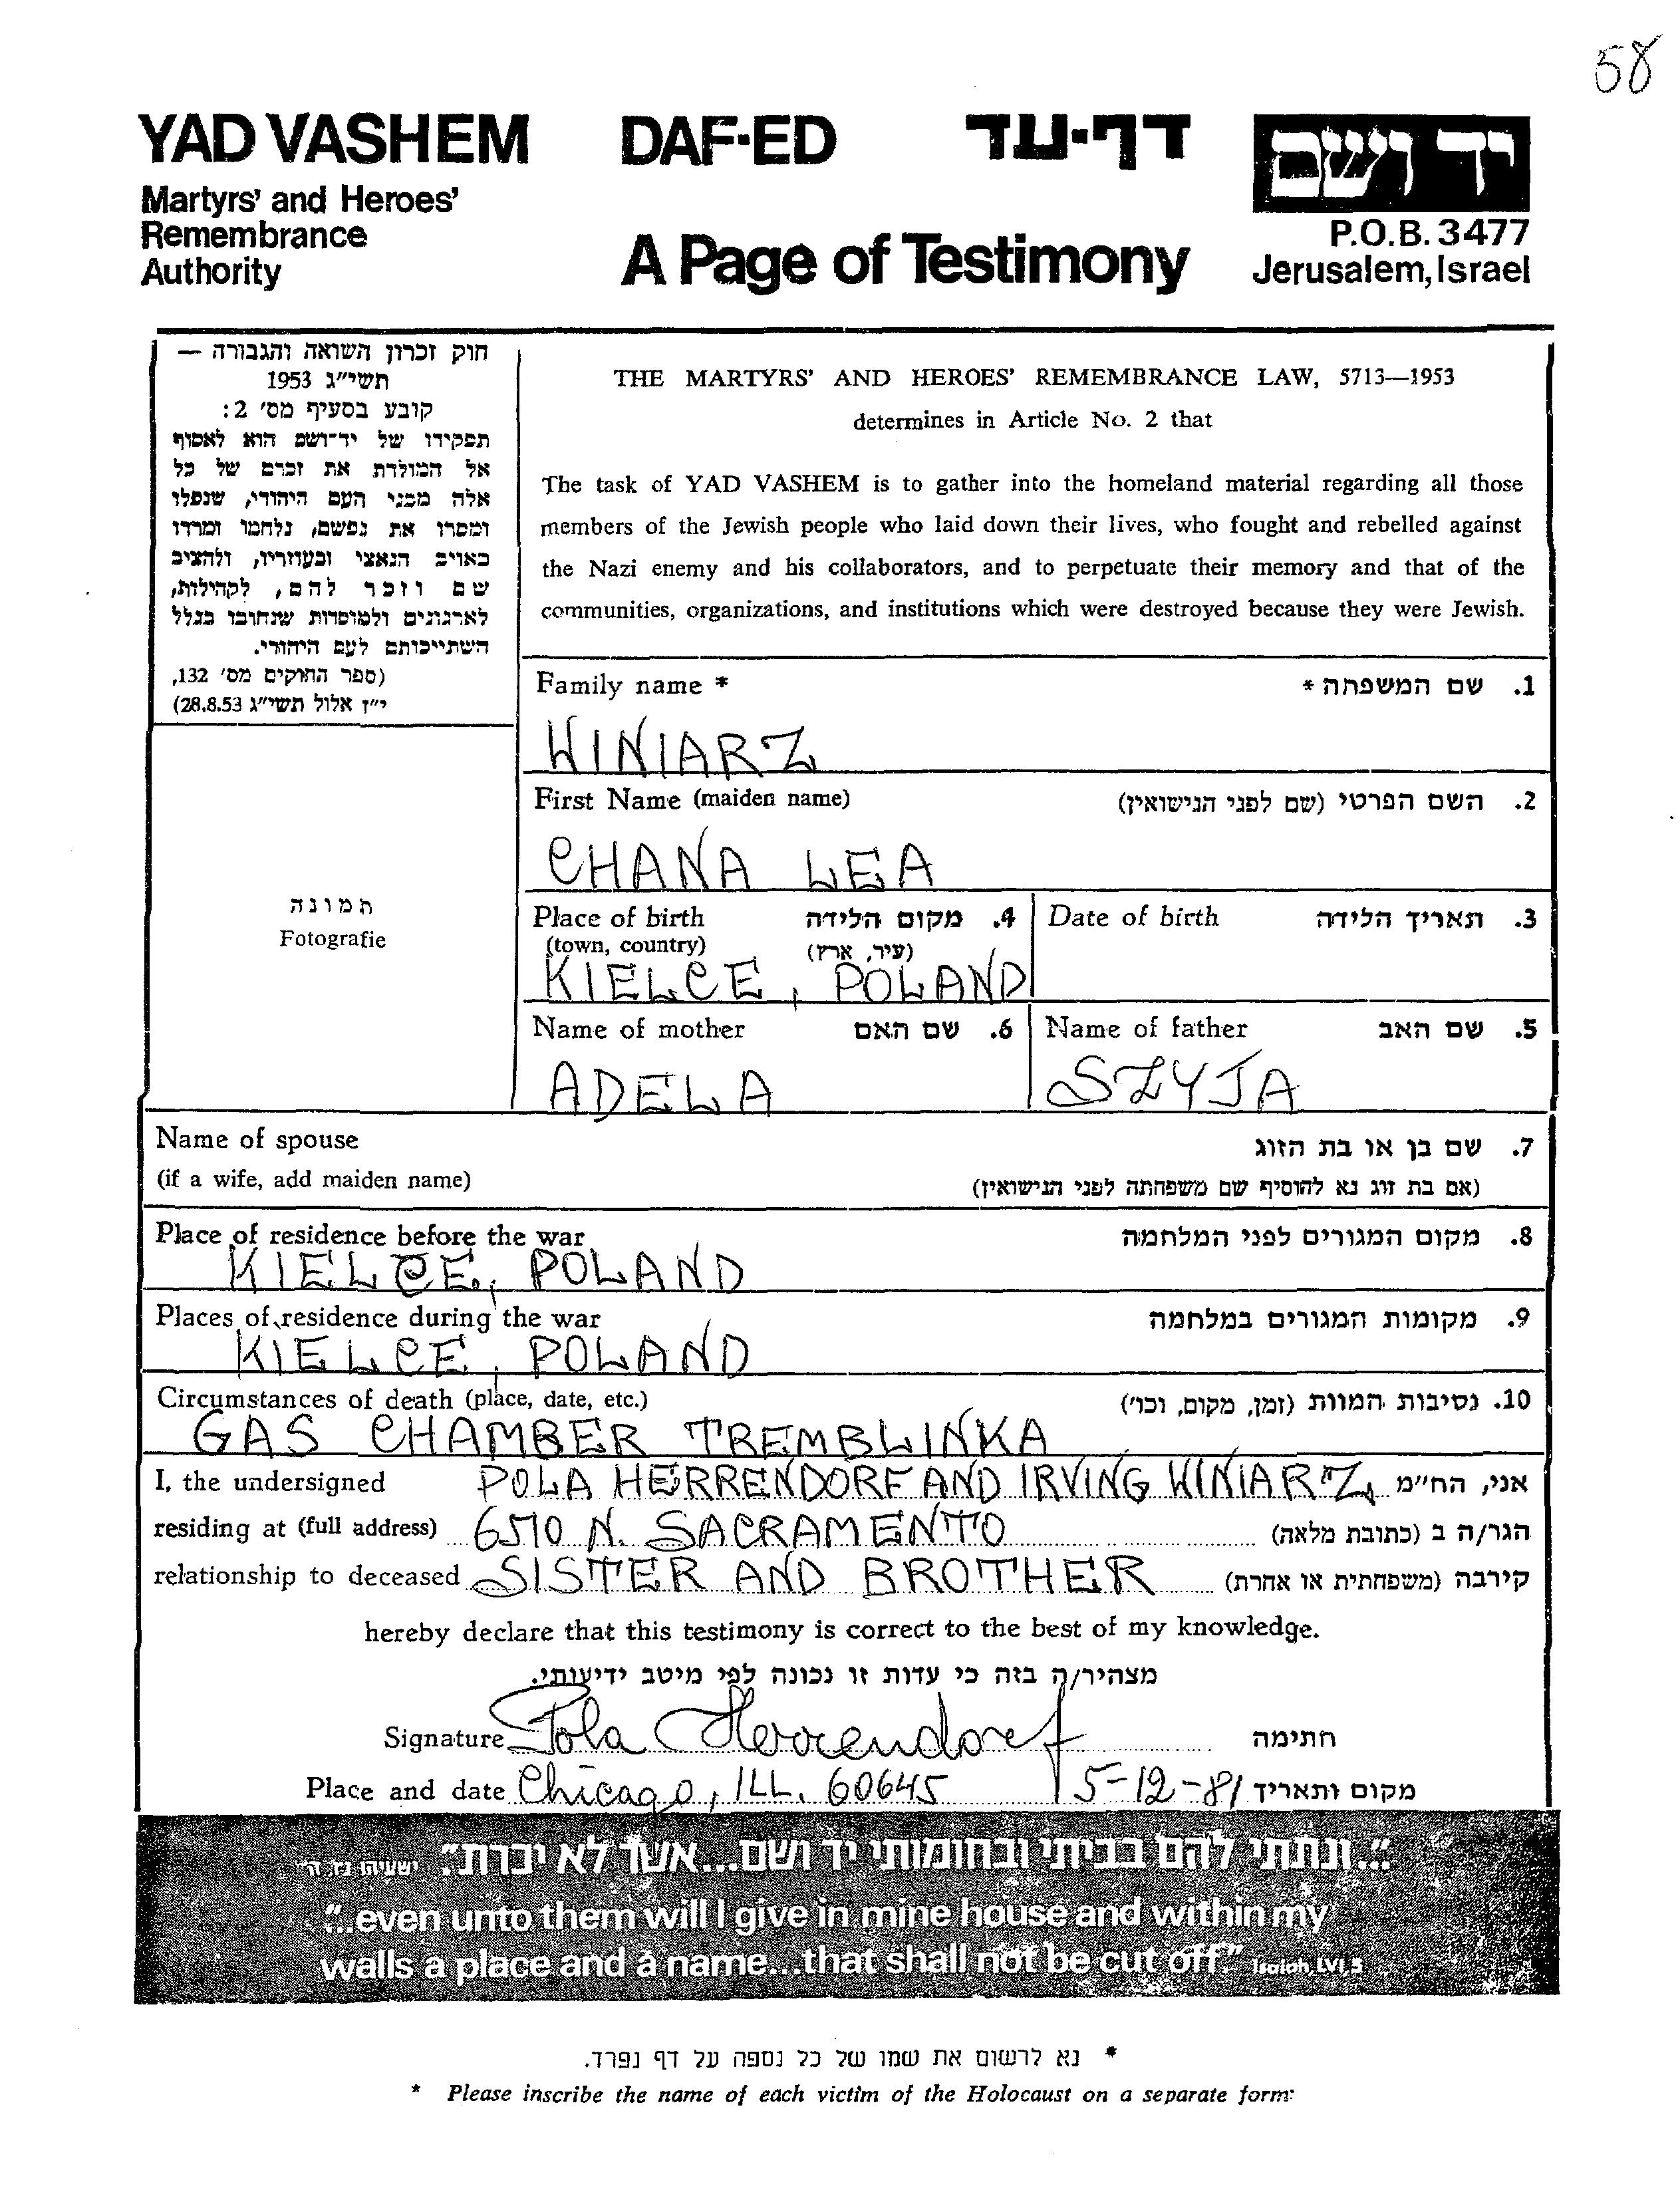 58
YAD VASHEM DAF-ED דף-עד יד ושם
Martyrs' and Heroes'
Remembrance
Authority
A Page of Testimony
P.O.B. 3477
Jerusalem, Israel
חוק זכרון השואה והגבורה —
תשי"ג 1953
קובע בסעיף מס' 2:
תפקידו של יד-ושם הוא לאסוף
אל המולדת את זכרם של כל
אלה מבני העם היהודי, שנפלו
ומסרו את נפשם, נלחמו ומרדו
באויב הנאצי ובעוזריו, ולהציב
שם וזכר להם, לקהילות,
לארגונים ולמוסדות שנחרבו בגלל
השתייכותם לעם היהודי.
(ספר החוקים מס' 132,
י"ז אלול תשי"ג 28.8.53)
THE MARTYRS' AND HEROES' REMEMBRANCE LAW, 5713—1953
determines in Article No. 2 that
The task of YAD VASHEM is to gather into the homeland material regarding all those
members of the Jewish people who laid down their lives, who fought and rebelled against
the Nazi enemy and his collaborators, and to perpetuate their memory and that of the
communities, organizations, and institutions which were destroyed because they were Jewish.
תמונה
Fotografie
Family name * 1. שם המשפחה *
WINIARZ
First Name (maiden name) 2. השם הפרטי (שם לפני הנישואין)
CHANA LEA
Place of birth 4. מקום הלידה
(town, country) (עיר, ארץ)
KIELCE, POLAND
Date of birth 3. תאריך הלידה
Name of mother 6. שם האם
ADELA
Name of father 5. שם האב
SZYJA
Name of spouse 7. שם בן או בת הזוג
(if a wife, add maiden name) (אם בת זוג נא להוסיף שם משפחתה לפני הנישואין)
Place of residence before the war 8. מקום המגורים לפני המלחמה
KIELCE, POLAND
Places of residence during the war 9. מקומות המגורים במלחמה
KIELCE, POLAND
Circumstances of death (place, date, etc.) 10. נסיבות המוות (זמן, מקום, וכו')
GAS CHAMBER TREMBLINKA
I, the undersigned POLA HERRENDORF AND IRVING WINIARZ אני, הח"מ
residing at (full address) 6510 N. SACRAMENTO הגר/ה ב (כתובת מלאה)
relationship to deceased SISTER AND BROTHER קירבה (משפחתית או אחרת)
hereby declare that this testimony is correct to the best of my knowledge.
מצהיר/ה בזה כי עדות זו נכונה לפי מיטב ידיעותי.
Signature Pola Herrendorf חתימה
Place and date Chicago, ILL. 60645 5-12-81 מקום ותאריך
"...ונתתי להם בביתי ובחומותי יד ושם...אשר לא יכרת." ישעיהו נו, ה'
"..even unto them will I give in mine house and within my
walls a place and a name...that shall not be cut off." Isaiah, LVI 5
* נא לרשום את שמו של כל נספה על דף נפרד.
* Please inscribe the name of each victim of the Holocaust on a separate form: